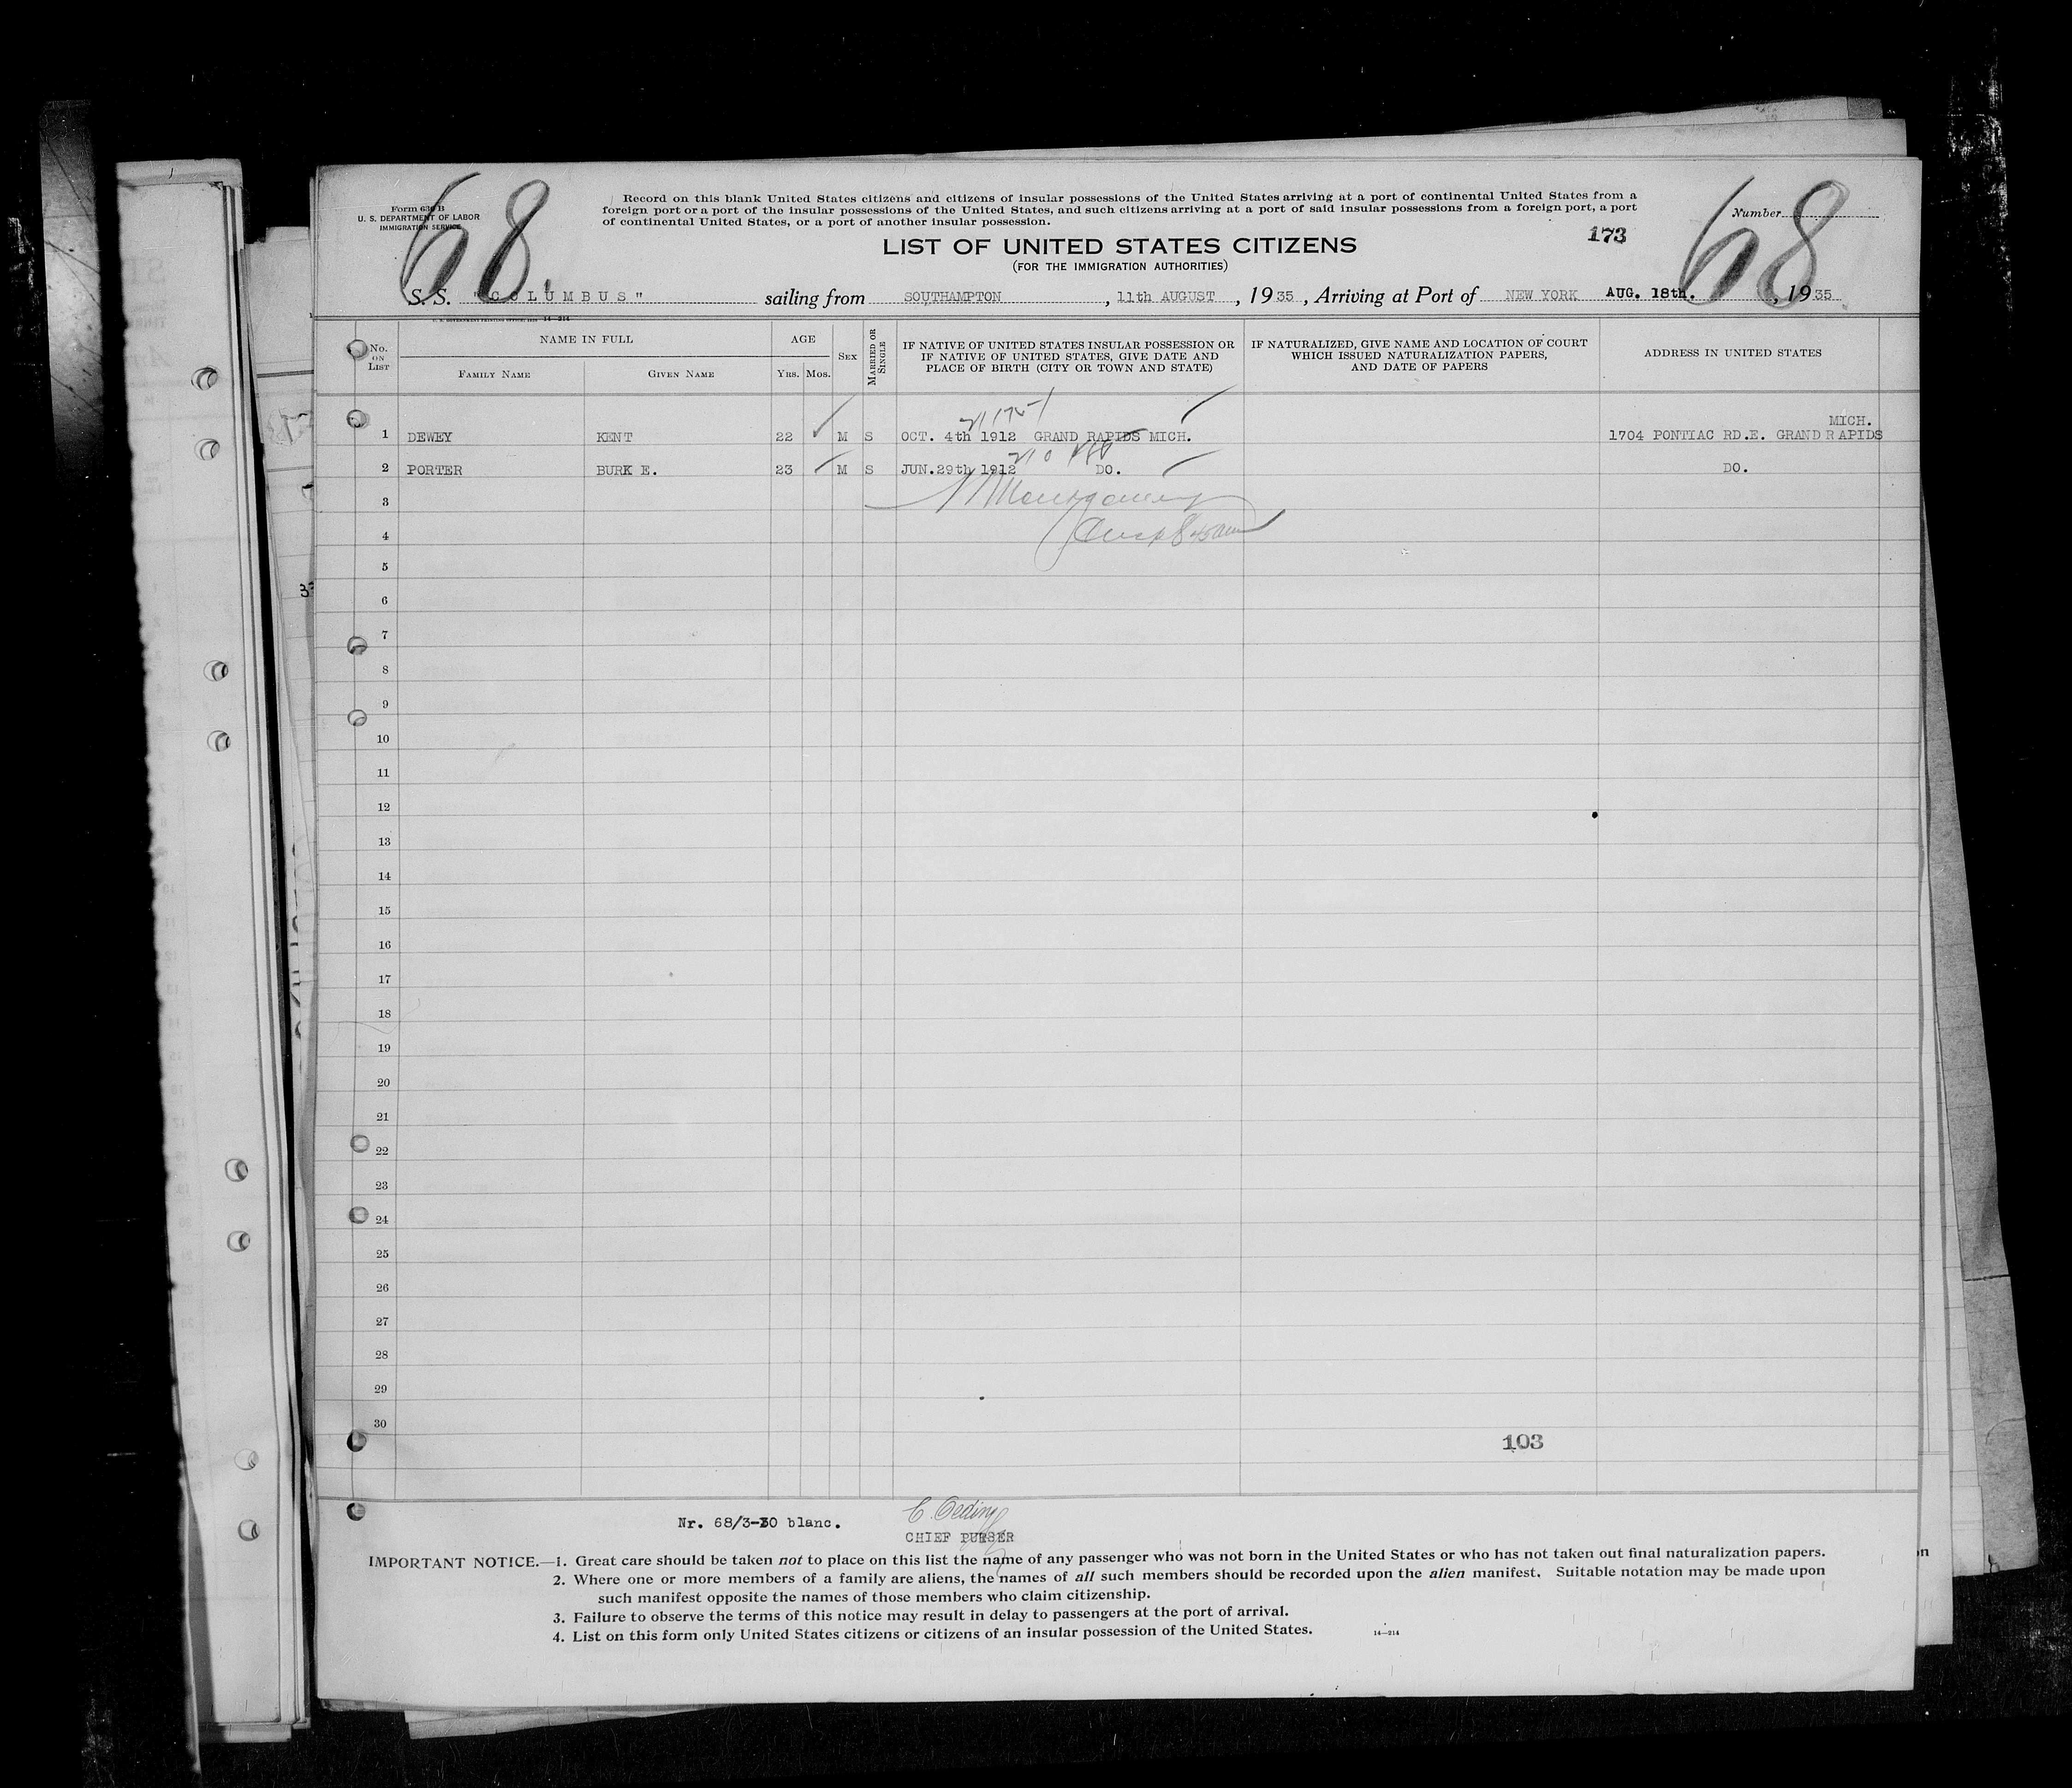 68.
68
Form 630 B
U. S. DEPARTMENT OF LABOR
IMMIGRATION SERVICE
Record on this blank United States citizens and citizens of insular possessions of the United States arriving at a port of continental United States from a
foreign port or a port of the insular possessions of the United States, and such citizens arriving at a port of said insular possessions from a foreign port, a port
of continental United States, or a port of another insular possession.
Number
LIST OF UNITED STATES CITIZENS
173
(FOR THE IMMIGRATION AUTHORITIES)
S. S. "COLUMBUS" sailing from SOUTHAMPTON, 11th AUGUST, 1935, Arriving at Port of NEW YORK AUG. 18th., 1935
No. ON LIST
NAME IN FULL
FAMILY NAME
GIVEN NAME
AGE
YRS.
MOS.
SEX
MARRIED OR SINGLE
IF NATIVE OF UNITED STATES INSULAR POSSESSION OR
IF NATIVE OF UNITED STATES, GIVE DATE AND
PLACE OF BIRTH (CITY OR TOWN AND STATE)
IF NATURALIZED, GIVE NAME AND LOCATION OF COURT
WHICH ISSUED NATURALIZATION PAPERS,
AND DATE OF PAPERS
ADDRESS IN UNITED STATES
MICH.
1 DEWEY KENT 22 M S OCT. 4th 1912 GRAND RAPIDS MICH. 1704 PONTIAC RD.E. GRAND RAPIDS
2 PORTER BURK E. 23 M S JUN.29th 1912 DO. DO.
3 Montgomery
4
5
6
7
8
9
10
11
12
13
14
15
16
17
18
19
20
21
22
23
24
25
26
27
28
29
30
103
Nr. 68/3-30 blanc.
C. Oeding
CHIEF PURSER
IMPORTANT NOTICE.—1. Great care should be taken not to place on this list the name of any passenger who was not born in the United States or who has not taken out final naturalization papers.
2. Where one or more members of a family are aliens, the names of all such members should be recorded upon the alien manifest. Suitable notation may be made upon
such manifest opposite the names of those members who claim citizenship.
3. Failure to observe the terms of this notice may result in delay to passengers at the port of arrival.
4. List on this form only United States citizens or citizens of an insular possession of the United States.
14—214